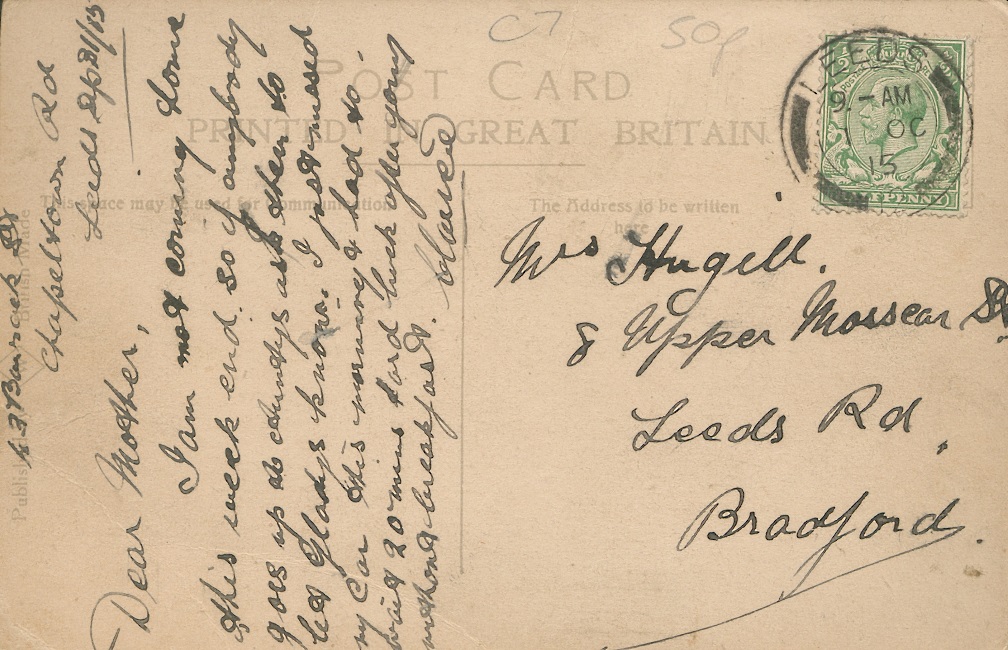 C7 50p
POST CARD
PRINTED IN GREAT BRITAIN.
This space may be used for communication
The Address to be written
here
LEEDS
9 - AM
OC
15
HALFPENNY
63 Barrack St
Chapeltown Rd
Leeds
Dear Mother,
I am not coming home
this week end. so if anybody
goes up to Auntys ask them to
let Gladys know. I just missed
my car this morning & had to
wait 20 mins hard luck after going
without breakfast.
Mrs Hugill.
8 Upper Mossear St.
Leeds Rd,
Bradford.
British Made